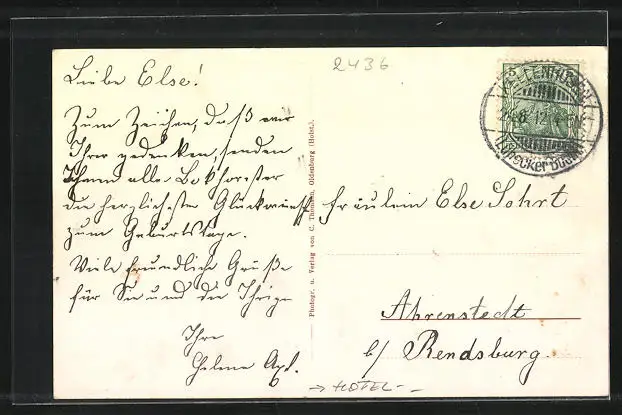 Liebe Else!
Zum Zeichen, daß wir
Ihrer gedenken, senden
Ihnen alle
die herzlichsten Glückwünsche
zum Geburtstage.
Viele freundliche Grüße
für Sie und die Ihrigen
Ihre
Helene
2436
Photogr. u. Verlag von C. Thomsen, Oldenburg (Holst.)
5
Lübecker Bucht
Fräulein Else Sohrt
Ahrenstedt
b/ Rendsburg.
→ HOTEL -